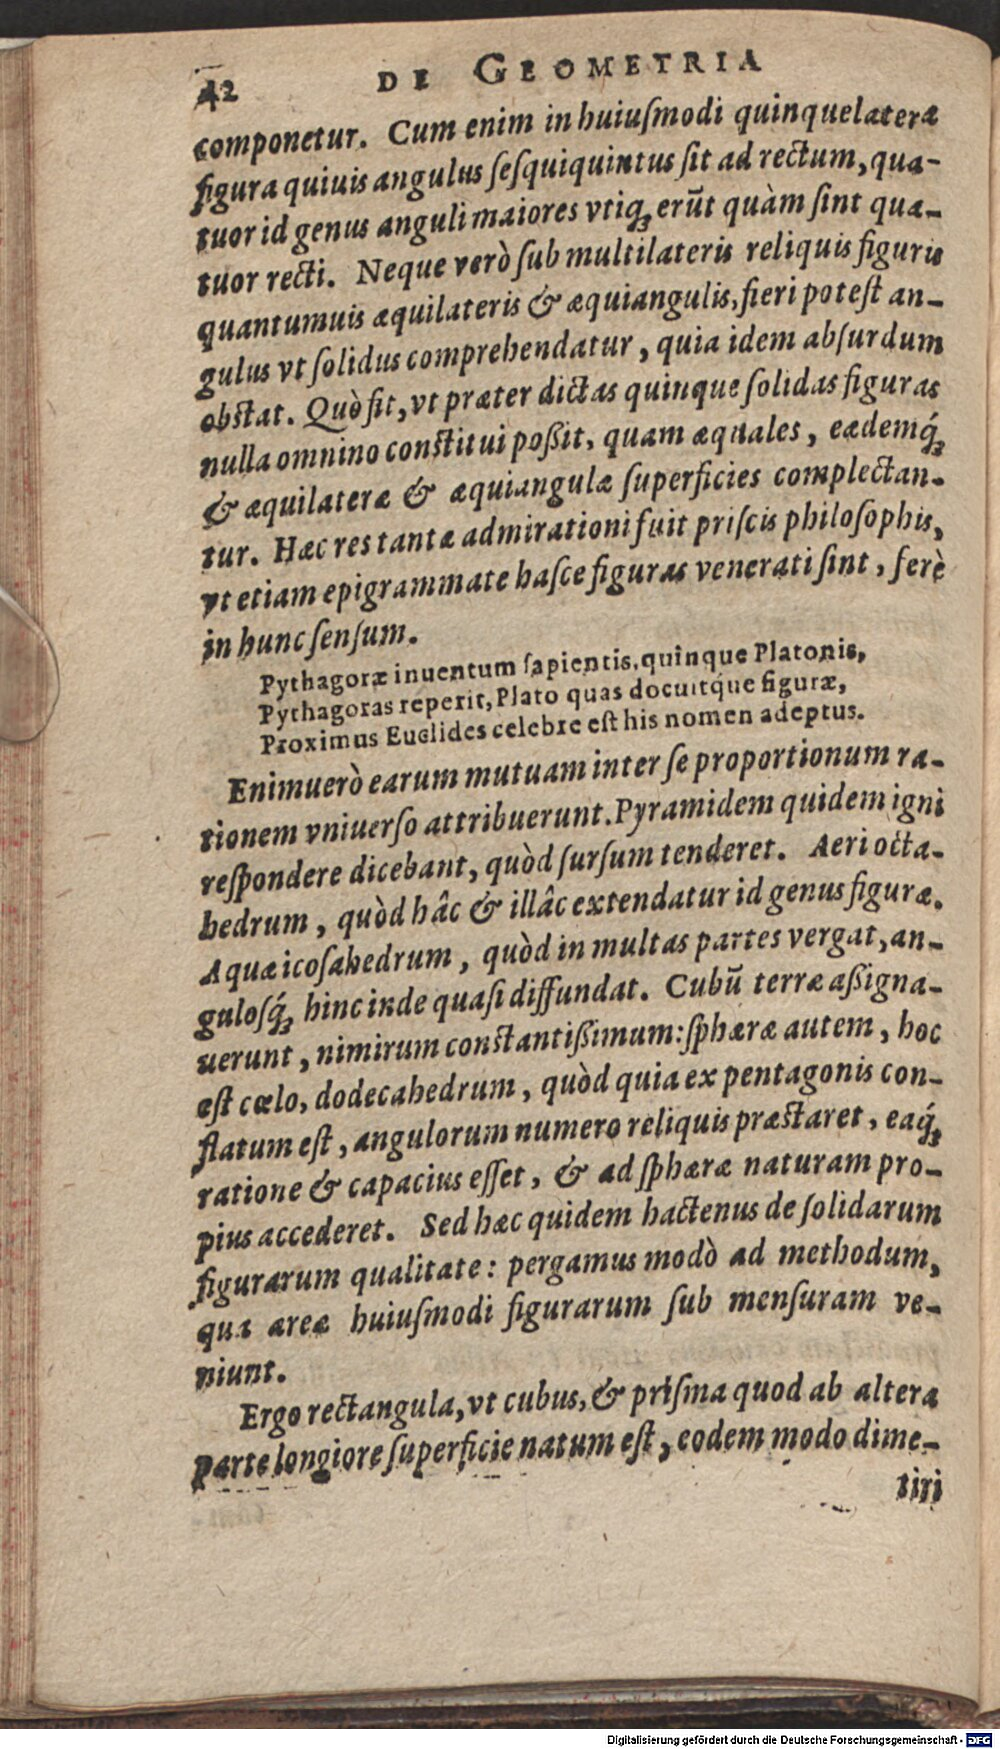 42 DE GEOMETRIA
componetur. Cum enim in huiuſmodi quinquelateræ
figura quiuis angulus ſeſquiquintus ſit ad rectum, qua-
tuor id genus anguli maiores vtiqꝫ erūt quàm ſint qua-
tuor recti. Neque verò ſub multilateris reliquis figuris
quantumuis æquilateris & æquiangulis, fieri poteſt an-
gulus vt ſolidus comprehendatur, quia idem abſurdum
obſtat. Quò fit, vt præter dictas quinque ſolidas figuras
nulla omnino conſtitui poßit, quam æquales, eædemq́ꝫ
& æquilateræ & æquiangulæ ſuperficies complectan-
tur. Hæc res tantæ admirationi fuit priſcis philoſophis,
vt etiam epigrammate haſce figuras venerati ſint, ferè
in hunc ſenſum.
Pythagoræ inuentum ſapientis, quinque Platonis,
Pythagoras reperit, Plato quas docuitque figuræ,
Proximus Euclides celebre eſt his nomen adeptus.
Enimuerò earum mutuam inter ſe proportionum ra-
tionem vniuerſo attribuerunt. Pyramidem quidem igni
reſpondere dicebant, quòd ſurſum tenderet. Aeri octa-
hedrum, quòd hâc & illâc extendatur id genus figuræ.
Aquæ icoſahedrum, quòd in multas partes vergat, an-
guloſq́ꝫ hinc inde quaſi diffundat. Cubū terræ aßigna-
uerunt, nimirum conſtantißimum: ſphæræ autem, hoc
eſt cœlo, dodecahedrum, quòd quia ex pentagonis con-
flatum eſt, angulorum numero reliquis præſtaret, eaq́ꝫ
ratione & capacius eſſet, & ad ſphæræ naturam pro-
pius accederet. Sed hæc quidem hactenus de ſolidarum
figurarum qualitate: pergamus modò ad methodum,
qua areæ huiuſmodi figurarum ſub menſuram ve-
niunt.
Ergo rectangula, vt cubus, & priſma quod ab altera
parte longiore ſuperficie natum eſt, eodem modo dime-
tiri
Digitalisierung gefördert durch die Deutsche Forschungsgemeinschaft - DFG